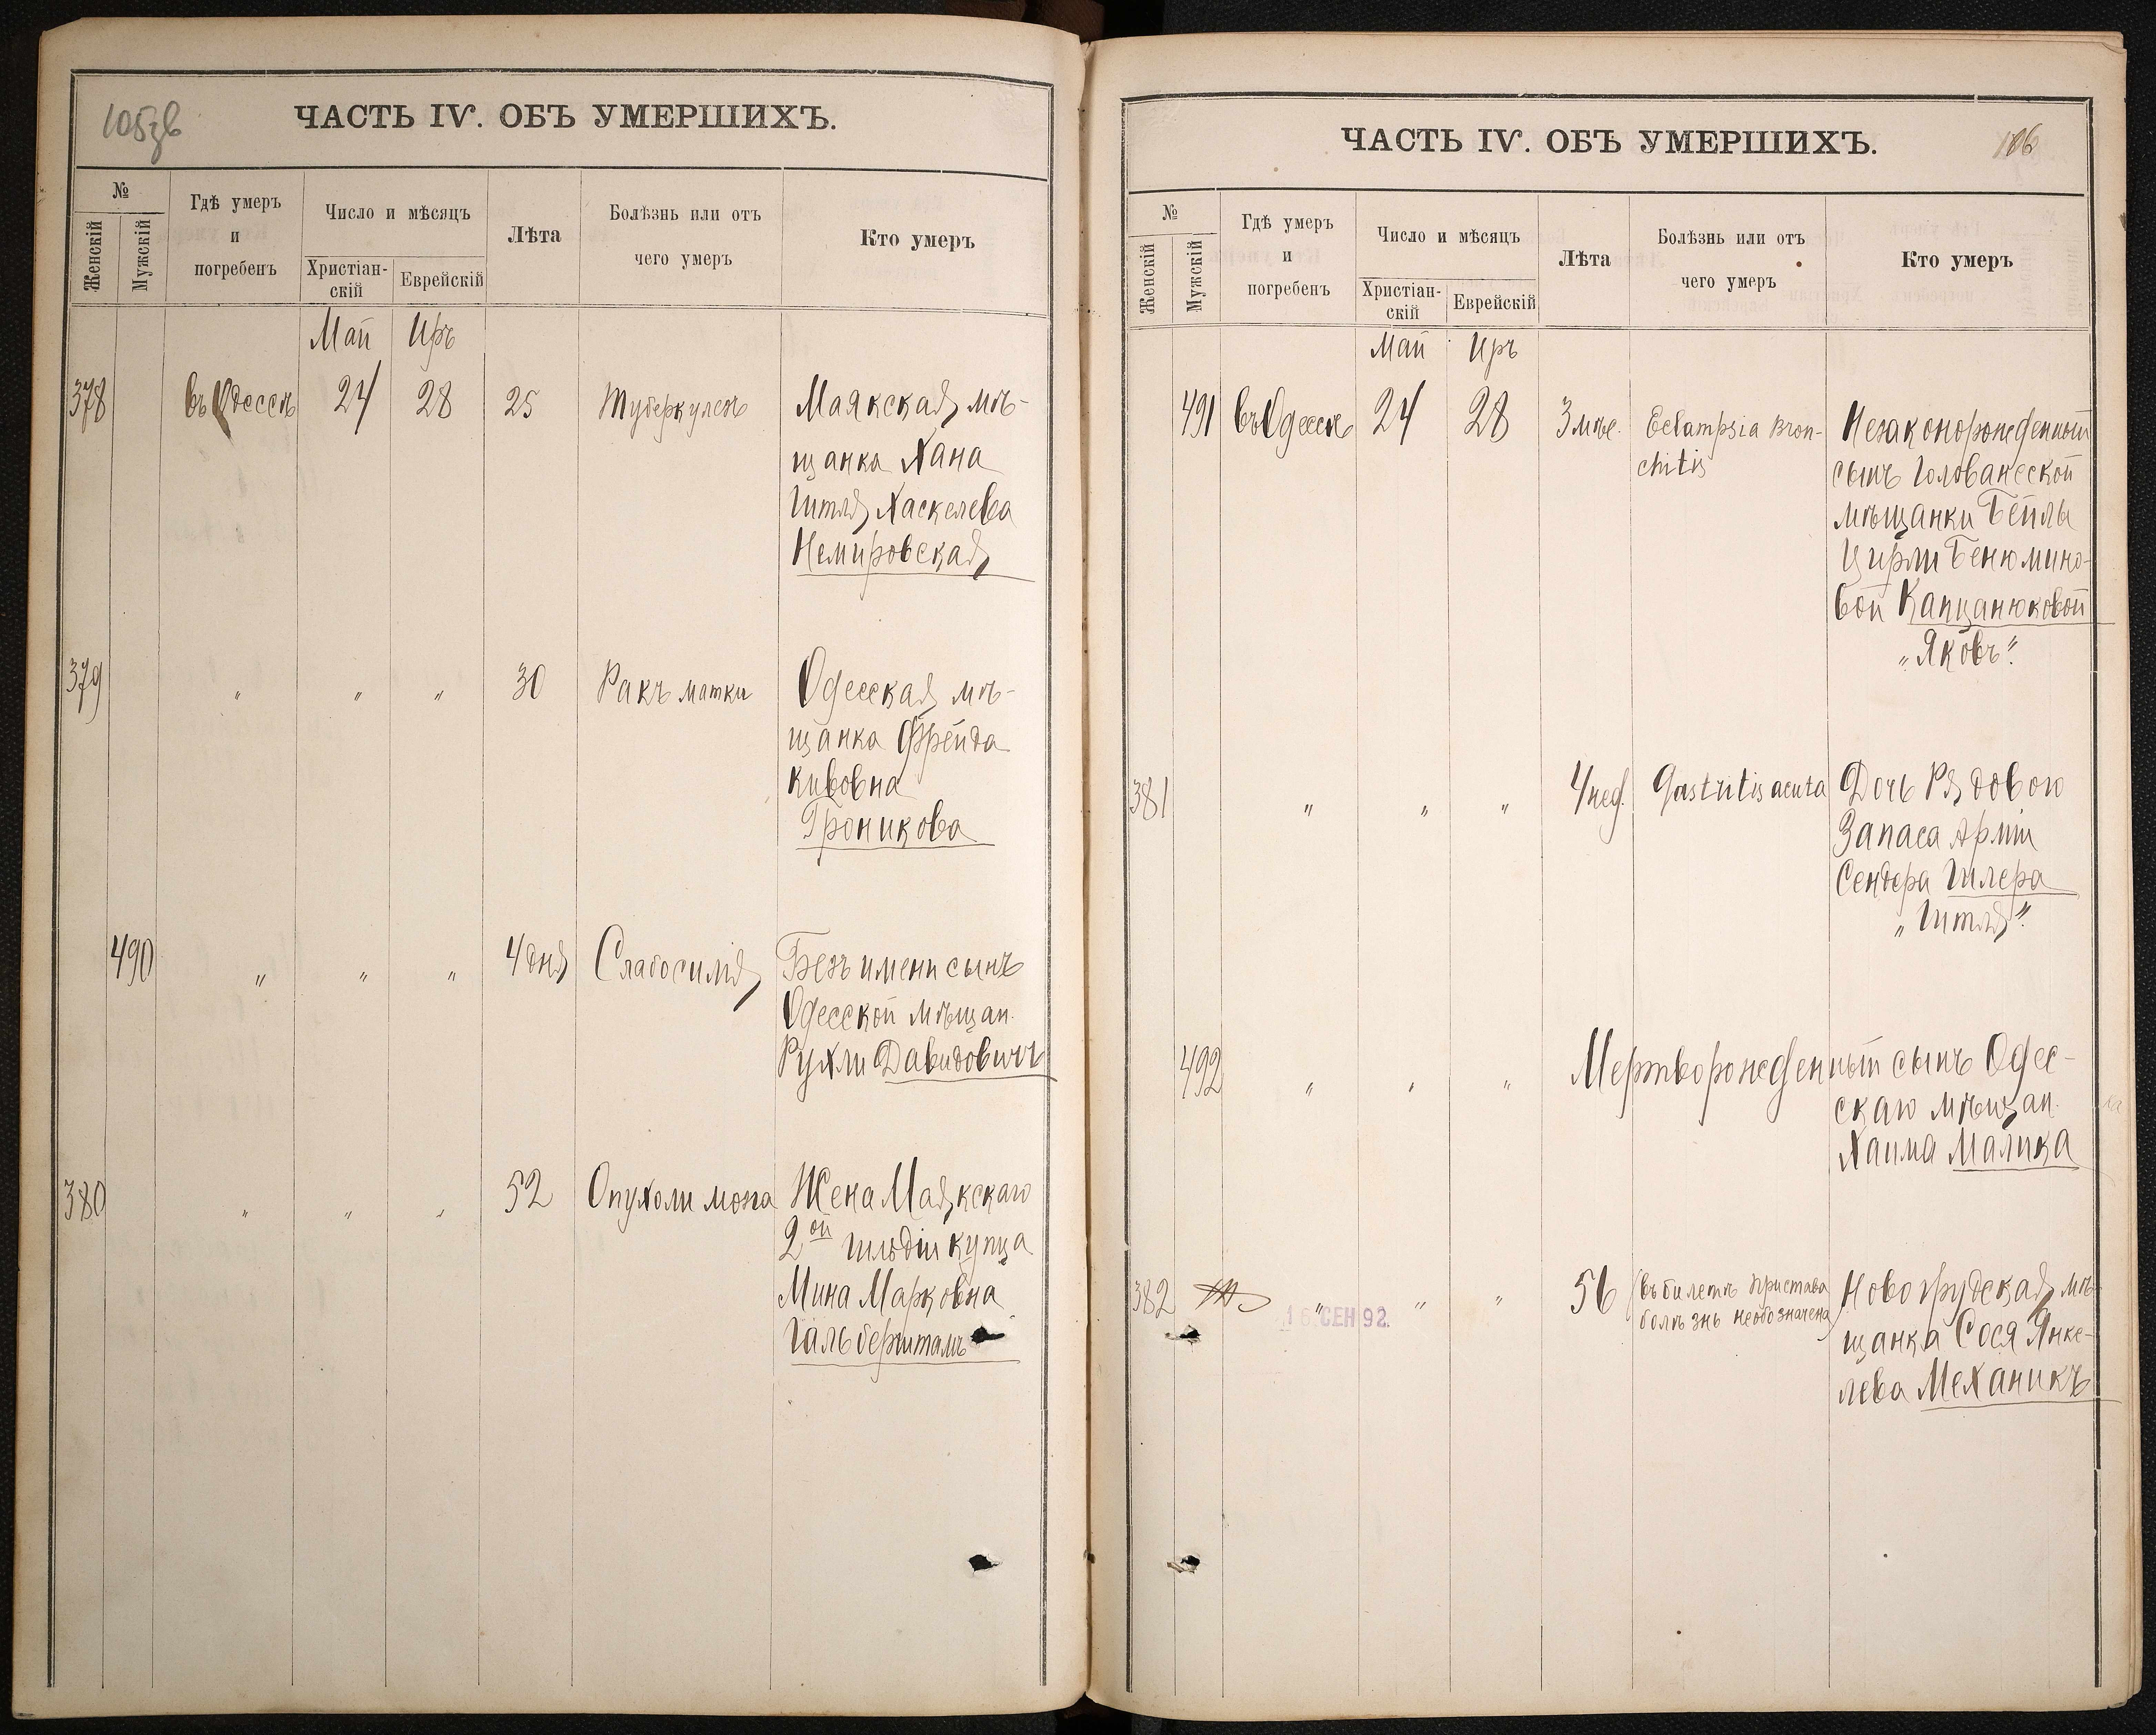 105 зв
ЧАСТЬ IV. ОБЪ УМЕРШИХЪ.
№
Женскій
Мужскій
Гдѣ умеръ
и
погребенъ
Число и мѣсяцъ
Христіан-
скій
Еврейскій
Лѣта
Болѣзнь или отъ
чего умеръ
Кто умеръ
Май Иръ
378 въ Одессѣ 24 28 25 Туберкулезъ Маякская мѣ-
щанка Хана
Гитля Хаскелева
Немировская
379 " " " 30 Ракъ матки Одесская мѣ-
щанка Фрейда
Кивовна
Броникова
490 " " " 4 дня Слабосилія Безъ имени сынъ
Одесской мѣщан.
Рухли Давидовичъ
380 " " " 52 Опухоли мозга Жена Маякскаго
2ой гильдіи купца
Мина Марковна
Гальберштамъ
ЧАСТЬ IV. ОБЪ УМЕРШИХЪ.
106
№
Женскій
Мужскій
Гдѣ умеръ
и
погребенъ
Число и мѣсяцъ
Христіан-
скій
Еврейскій
Лѣта
Болѣзнь или отъ
чего умеръ
Кто умеръ
Май Иръ
491 въ Одессѣ 24 28 3 мѣс. Eclampsia bron- Незаконорожденный
chitis сынъ Голованеской
мѣщанки Бейлы
Цирли Бенюмино-
вой Капцанюковой
"Яковъ".
381 " " " 4 нед. Gastritis acuta Дочь Рядового
Запаса Арміи
Сендера Гилера
"Гитля".
492 " " " Мертворожденный сынъ Одес-
скаго мѣщан.
Хаима Малика
382 " " " 56 (въ билетѣ пристава Новогрудская мѣ-
болѣзнь необозначена) щанка Сося Янке-
лева Механикъ
16 СЕН 92.